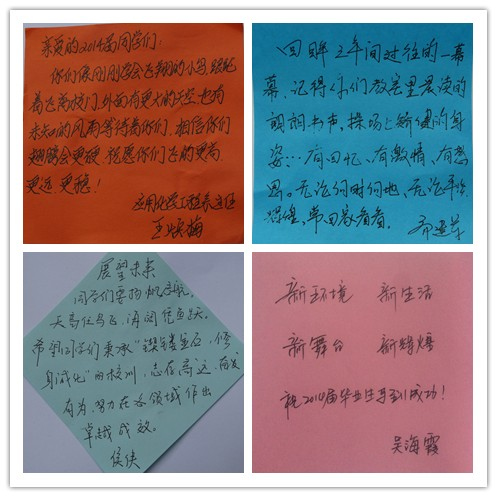 亲爱的2014届同学们：
你们像刚刚学会飞翔的小鸟，跟跄
着飞离校门，外面有更大的天空，也有
未知的风雨等待着你们，相信你们
翅膀会更硬，祝愿你们飞的更高
更远、更稳！
应用化学工程系主任
王焕梅
回眸三年间过往的一幕
幕，记得你们教室里晨读的
朗朗书声、操场上矫健的身
姿…有回忆、有激情、有感
恩。无论何时何地、无论平坎
坷，常回家看看。
展望未来
同学们要扬帆启航。
天高任鸟飞，海阔凭鱼跃。
希望同学们秉承“
身诚化”的校训，志存高远，奋发
有为，努力在各领域作出
卓越成效。
侯侠
新环境 新生活
新舞台 新辉煌
祝2014届毕业生马到成功！
吴海霞